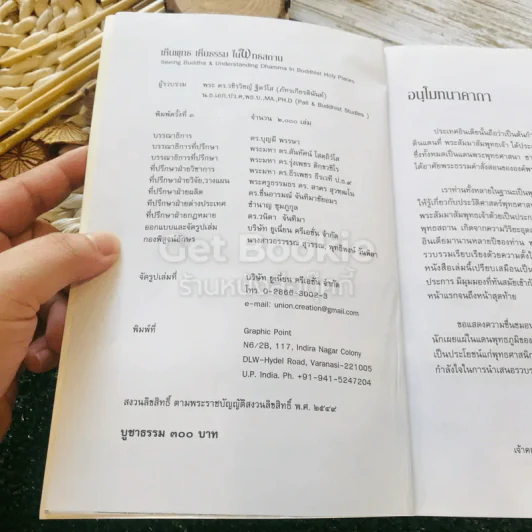 เห็นพุทธ เห็นธรรม ในพุทธสถาน
Seeing Buddha & Understanding Dhamma In Buddhist Holy Places
ผู้รวบรวม พระ ดร.วชิรวิชญ์ ฐิตวํโส (ภัทรเกียรตินันท์)
น.ธ.เอก,ปว.ค,พธ.บ.,MA.,PH.D (Pali & Buddhist Studies)
พิมพ์ครั้งที่ ๓ จำนวน ๒,๐๐๐ เล่ม
บรรณาธิการ ดร.บุญมี พรรษา
บรรณาธิการที่ปรึกษา พระมหา ดร.สันทัศน์
บรรณาธิการที่ปรึกษา พระมหา ดร.รุ่งเพชร
ที่ปรึกษาฝ่ายวิชาการ พระมหา ดร.ธีรเพชร ธีรเวที ป.ธ.๙
ที่ปรึกษาฝ่ายวิจัย,วางแผน พระครูธรรมธร ดร. สาคร สุวฑฺฒโน
ที่ปรึกษาฝ่ายผลิต ดร.ชื่นอารมณ์ จันทิมาชัยอมร
ที่ปรึกษาฝ่ายต่างประเทศ ชำนาญ
ที่ปรึกษาฝ่ายกฎหมาย ดร.วนิดา จันทิมา
ออกแบบและจัดรูปเล่ม บริษัท ยูเนี่ยน ครีเอชั่น จำกัด
กองพิสูจน์อักษร นางสาวอรวรรณ สุวรรณ,
จัดรูปเล่มที่ บริษัท ยูเนี่ยน ครีเอชั่น จำกัด
โทร 0-2866-3002-3
e-mail: union.creation@gmail.com
พิมพ์ที่ Graphic Point
N6/2B, 117, Indira Nagar Colony
DLW-Hydel Road, Varanasi-221005
U.P. India. Ph. +91-941-5247204
สงวนลิขสิทธิ์ ตามพระราชบัญญัติสงวนลิขสิทธิ์ พ.ศ. ๒๕๔๙
บูชาธรรม ๓๐๐ บาท
Get Bookie
อนุโมทนาคาถา
ประเทศอินเดียนั้นถือว่าเป็นต้น
ดินแดนที่ พระสัมมาสัมพุทธเจ้า ได้
ซึ่งทั้งหมดเป็นแดนพระพุทธศาสนา
ได้อาศัยพระธรรมคำสั่งสอนขององค์
เราท่านทั้งหลายในฐานะเป็น
ให้รู้เกี่ยวกับประวัติศาสตร์พุทธศาส
พระสัมมาสัมพุทธเจ้าด้วยเป็นประ
พุทธสถาน เกิดจากความวิริยะอุต
อินเดียมานานหลายปีของท่าน
รวบรวมเรียบเรียงด้วยความตั้งใจ
หนังสือเล่มนี้เปรียบเสมือนเป็น
ประการ มีมุมมองที่ทันสมัยเข้า
หน้าแรกจนถึงหน้าสุดท้าย
ขอแสดงความชื่นชม
นักเผยแผ่ในแดนพุทธภูมิของ
เป็นประโยชน์แก่พุทธศาสนิก
กำลังใจในการนำเสนอรวบร